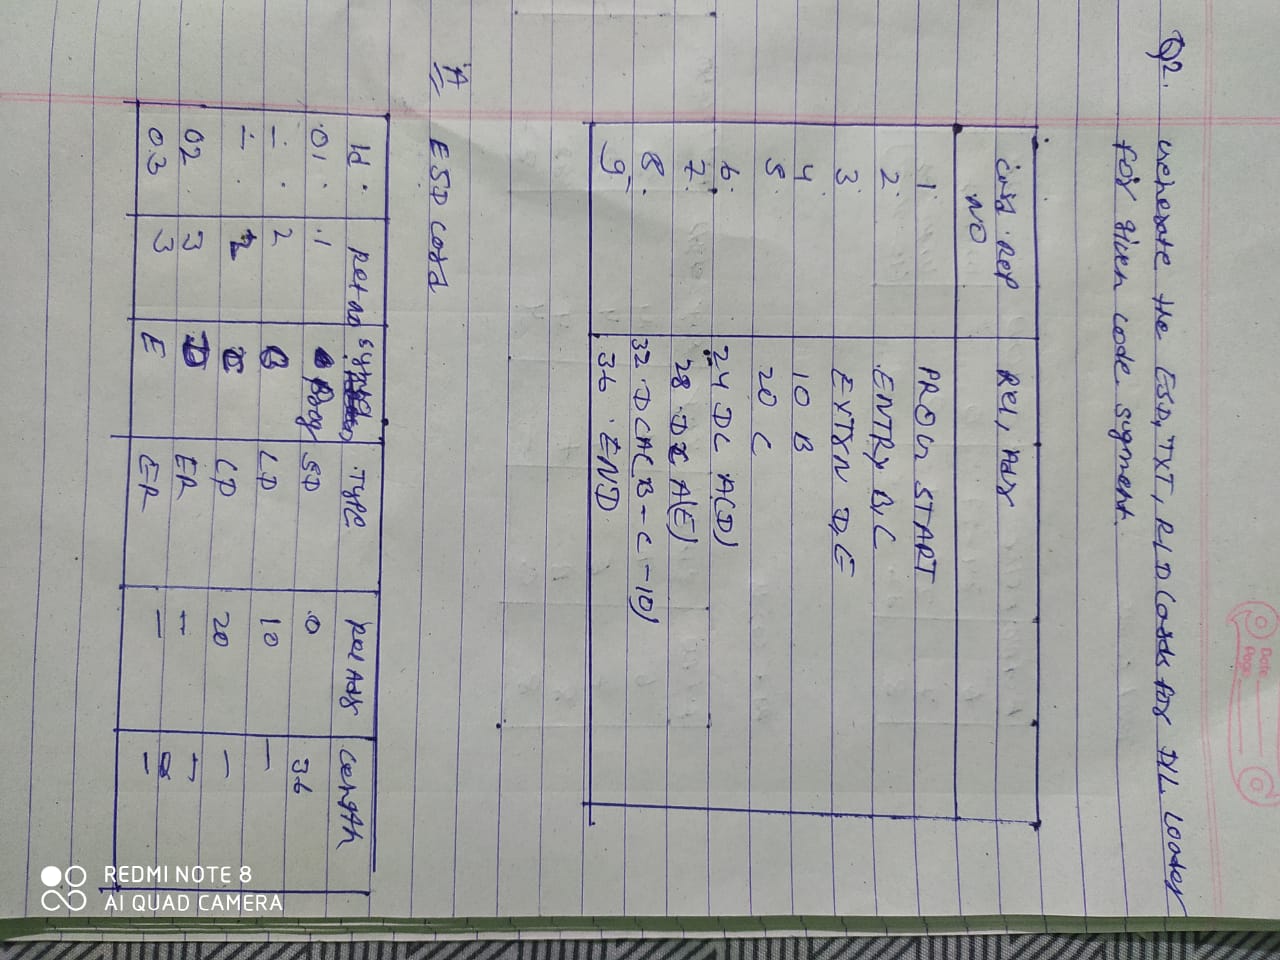 Date
Page
Q2. Generate the ESD, TXT, RLD Cards for D/L Loader
for given code sugment.
Card Ref Rel, Adr
NO
1 PROG START
2 ENTRY B, C
3 EXTRN D, E
4 10 B
5 20 C
6 24 DC A(D)
7 28 DC A(E)
8 32 DC A( B - C - 10)
9 36 END
A ESD card
Id Ref no Symbol TYPE Rel Adr Length
01 1 Prog SD 0 36
- 2 B LD 10 -
- 2 C LD 20 -
02 3 D ER - -
03 3 E ER - -
REDMI NOTE 8
AI QUAD CAMERA